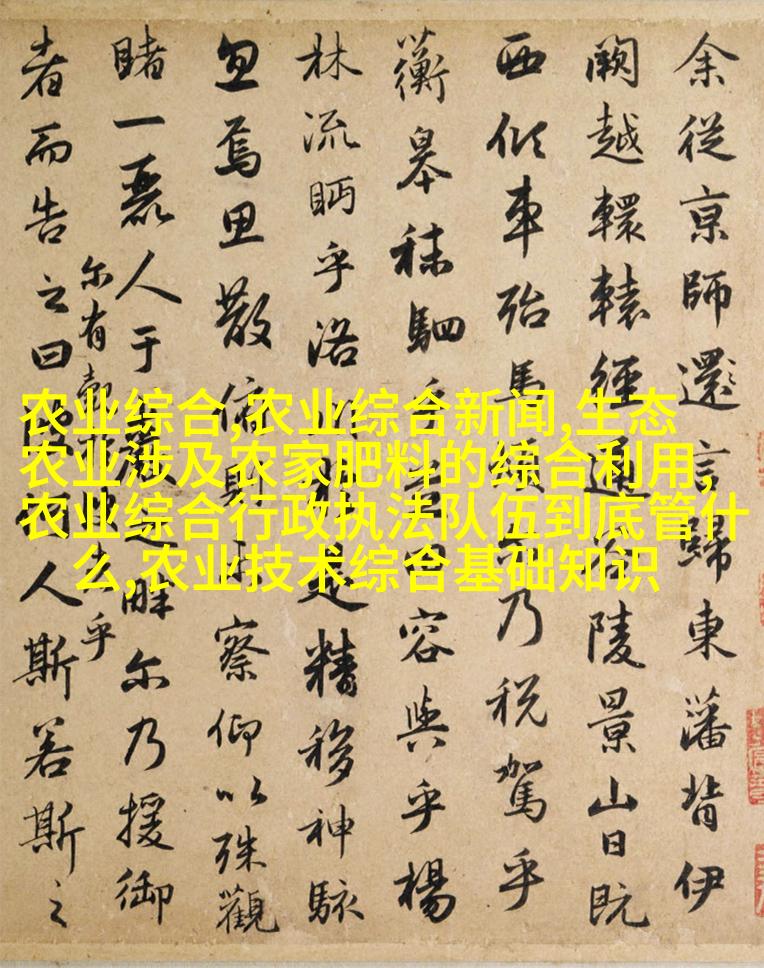 农业综合,农业综合新闻,生态
农业涉及农家肥料的综合利用,
农业综合行政执法队伍到底管什
么,农业技术综合基础知识
余從京師還言歸東藩背伊
闕越轘轅經通谷陵景山日既
西傾車殆馬乃税駕乎
蘅皋秣駟乎田容與乎楊
林流眄乎洛川是精移神駭
忽焉思散俯則未察仰以殊觀
睹一麗人于巖之畔尔乃援御
者而告之曰人斯若斯之
尔有乎